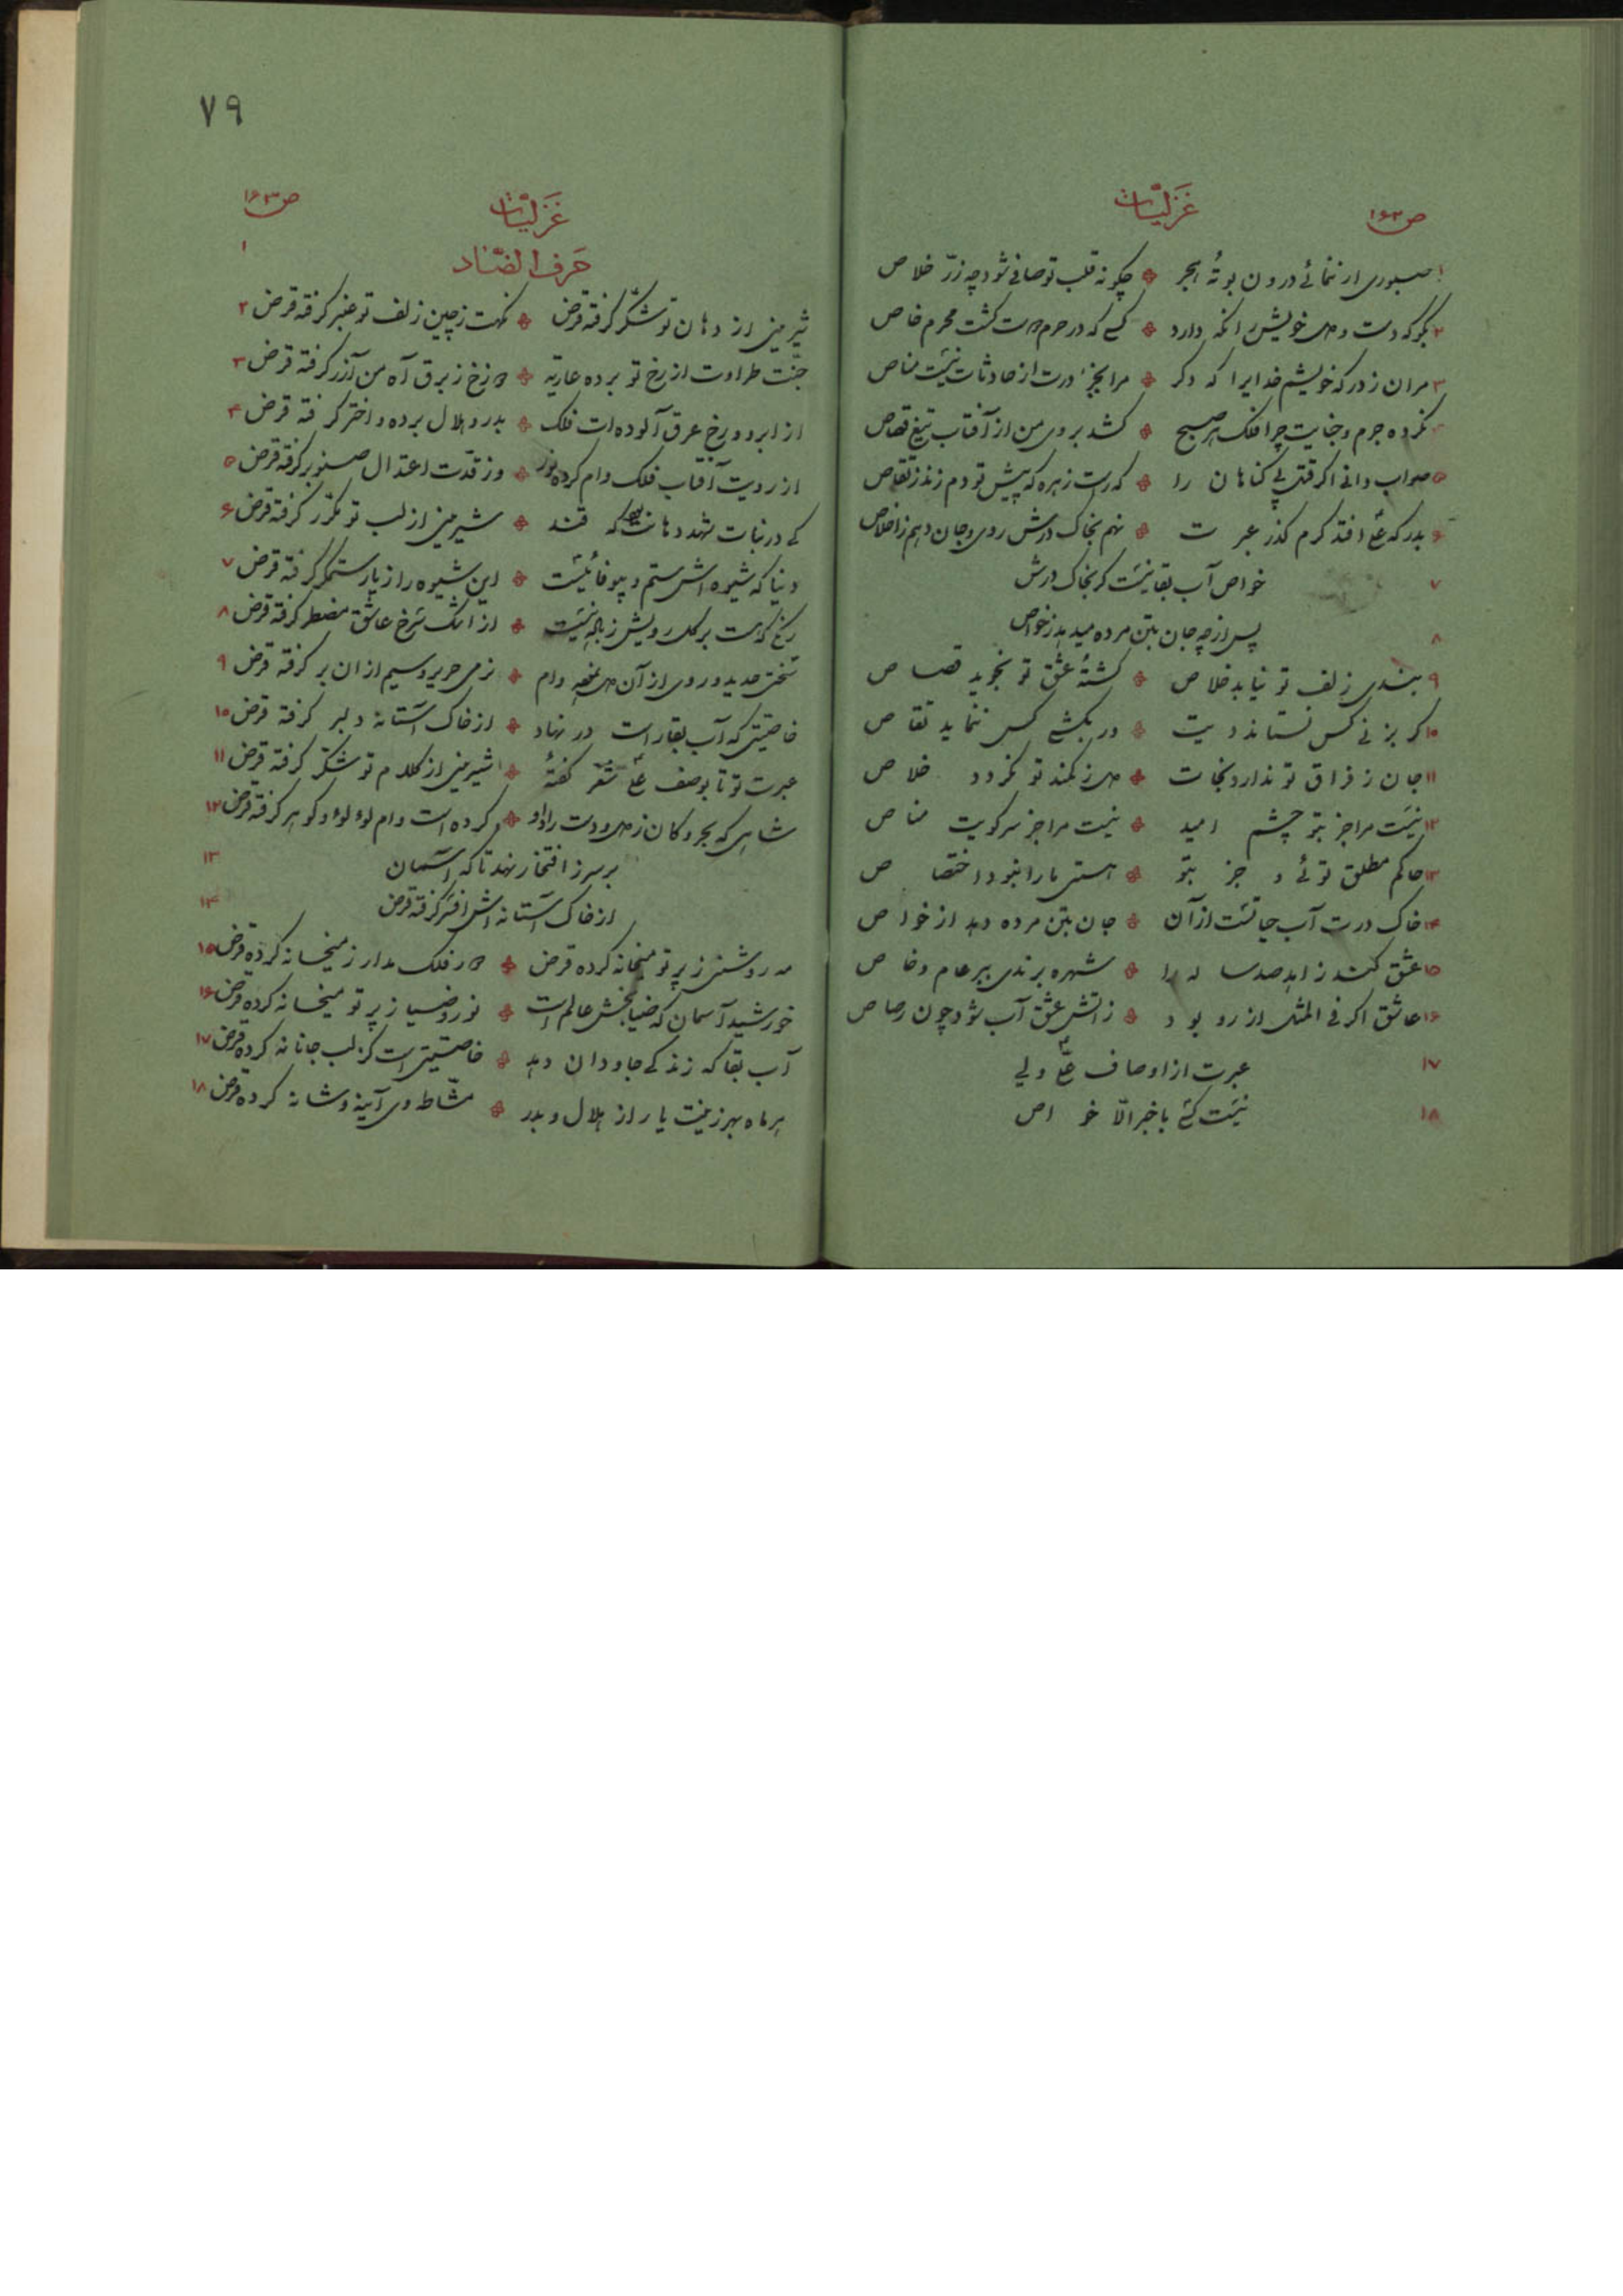 ص ۱۶۲
غزلیات
۱ صبوری ار ننمائی درون بوتهٔ هجر چگونه قلب تو صافی شود چه زرّ خلاص
۲ بگو که دست و دل خویش را نگه دارد کسی که در حرم دل گشت محرم خاص
۳ مران ز درگه خویشم خدایرا که دگر مرا بجز درت از حادثات نیست مناص
نکرده جرم و جنایت چرا فلک هر صبح کشد بروی من از آفتاب تیغ قصاص
۵ صواب دانی اگر قتل بی گناهان را کراست زهره که پیش تو دم زند ز تقاص
۶ بدرگه علی افتد گرم گذر عبرت نهم بخاک درش روی و جان دهم ز اخلاص
۷ خواص آب بقا نیست گر بخاک درش
۸ پس از چه جان بتن مرده میدهد ز خواص
۹ بندی زلف تو نیابد خلاص کشتهٔ عشق تو نجوید قصاص
۱۰ گر بزنی کس نستاند دیت ور بکشی کس ننماید تقاص
۱۱ جان ز فراق تو ندارد نجات دل ز کمند تو نگردد خلاص
۱۲ نیست مرا جز بتو چشم امید نیست مرا جز سر کویت مناص
۱۳ حاکم مطلق توئی و جز بتو هستی ما را نبود اختصاص
۱۴ خاک درت آب حیاتست از آن جان بتن مرده دهد از خواص
۱۵ عشق کند زاهد صد ساله را شهره برندی ببر عام و خاص
۱۶ عاشق اگر فی المثل از رو بود زاتش عشق آب شود چون رصاص
۱۷ عبرت از اوصاف علی ولی
۱۸ نیست کسی باخبر الّا خواص
۷۹
ص ۱۶۳
غزلیات
۱ حرف الضّاد
شیرینی از دهان تو شکّر گرفته قرض نکهت ز چین زلف تو عنبر گرفته قرض ۲
جنّت طراوت از رخ تو برده عاریه دوزخ ز برق آه من آذر گرفته قرض ۳
از ابرو و رخ عرق آلوده ات فلک بدر و هلال برده و اختر گرفته قرض ۴
از رویت آفتاب فلک وام کرده نور وز قدّت اعتدال صنوبر گرفته قرض ۵
کی در نبات شهد دهانت بود که قند شیرینی از لب تو مکرّر گرفته قرض ۶
دنیا که شیوه اش ستم و بیوفائیست این شیوه را ز یار ستمگر گرفته قرض ۷
رنگی که هست بر گل رویش ز باله نیست از اشک سرخ عاشق مضطر گرفته قرض ۸
سختی حدید و روی از آن دل نموده وام نرمی حریر و سیم از ان بر گرفته قرض ۹
خاصیّتی که آب بقا راست در نهاد از خاک آستانهٔ دلبر گرفته قرض ۱۰
عبرت تو تا بوصف علی شعر گفتهٔ شیرینی از کلام تو شکّر گرفته قرض ۱۱
شاهی که بحر و کان ز دل و دست راد او کرده است وام لؤلؤ و گوهر گرفته قرض ۱۲
بر سر ز افتخار نهد تا که آسمان ۱۳
از خاک آستانه اش افسر گرفته قرض ۱۴
مه روشنی ز پرتو میخانه کرده قرض دور فلک مدار ز میخانه کرده قرض ۱۵
خورشید آسمان که ضیا بخش عالم است نور و ضیا ز پرتو میخانه کرده قرض ۱۶
آب بقا که زندگی جاودان دهد خاصیّتی است کز لب جانانه کرده قرض ۱۷
هر ماه بهر زینت یار از هلال و بدر مشّاطه وی آینه و شانه کرده قرض ۱۸